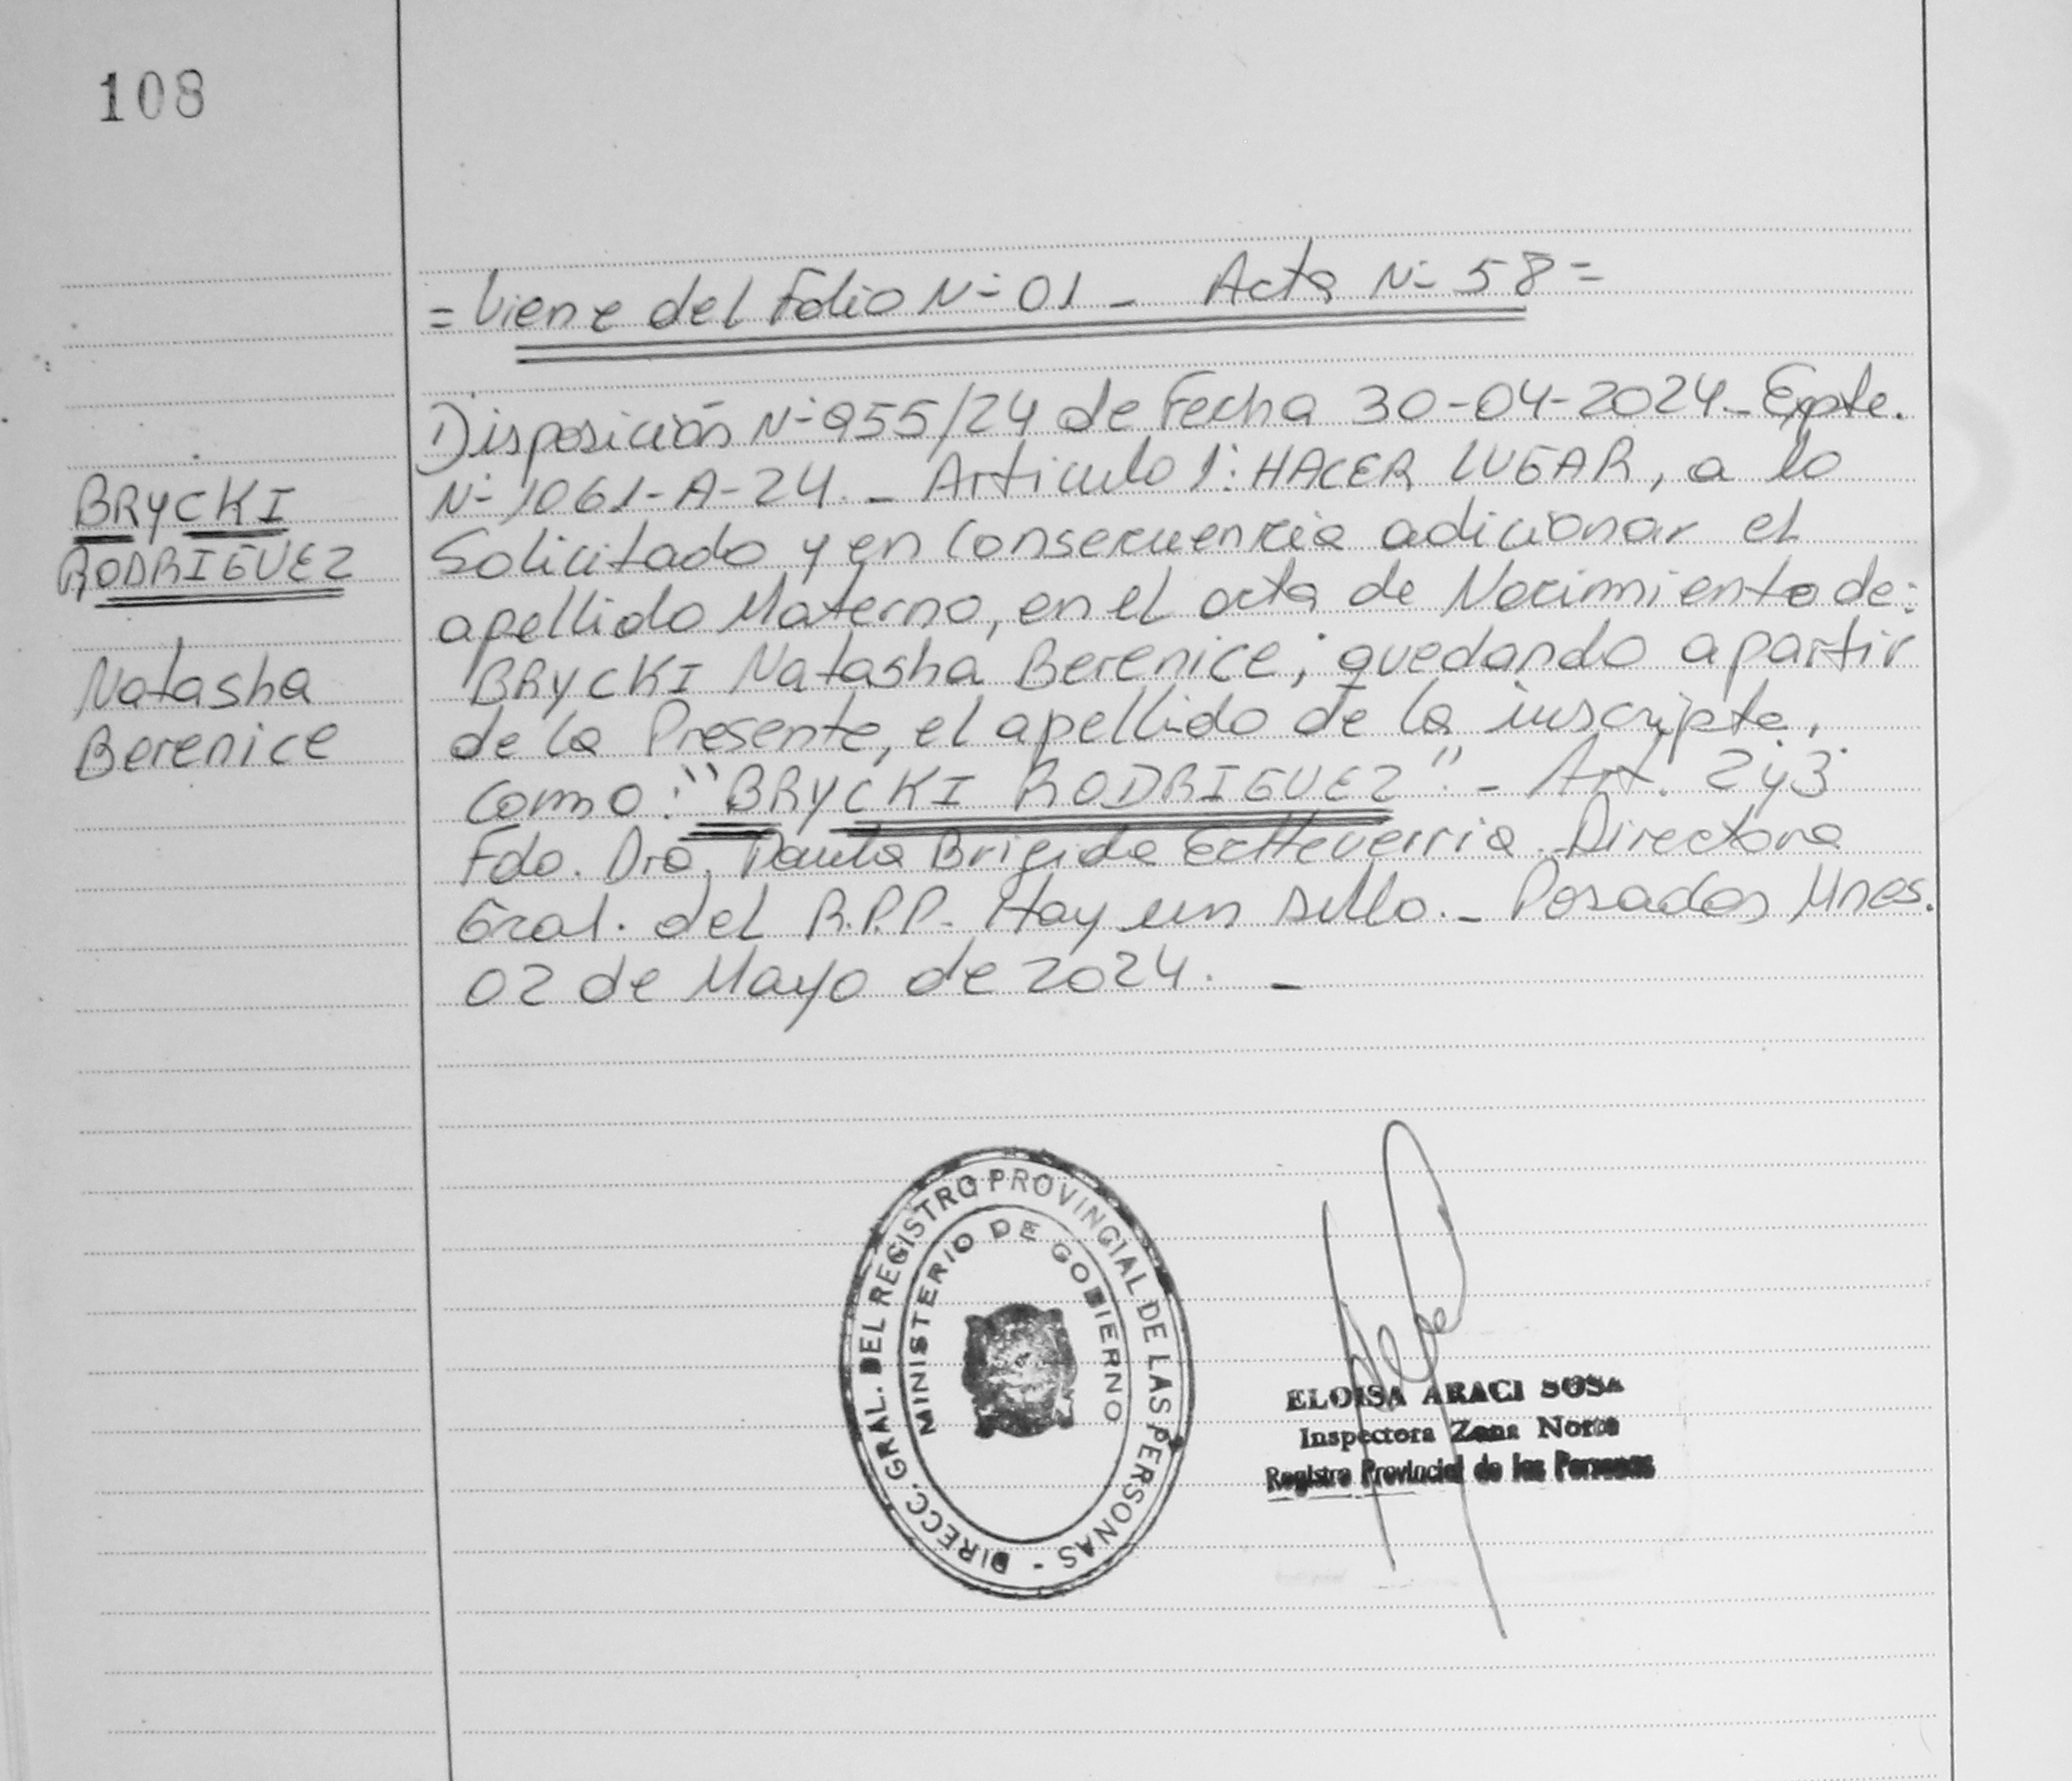 108
= Viene del Folio Nº 01 - Acta Nº 58 =
BRYCKI
RODRIGUEZ
Natasha
Berenice
Disposición Nº 955/24 de Fecha 30-04-2024 - Expte.
Nº 1061-A-24. - Articulo 1º: HACER LUGAR, a lo
Solicitado y en Consecuencia adicionar el
apellido Materno, en el acta de Nacimiento de:
BRYCKI Natasha Berenice; quedando a partir
de la Presente, el apellido de la inscripta,
como: "BRYCKI RODRIGUEZ". - Art. 2º y 3º
Fdo. Dra. Paula Brigida Echeverria Directora
Gral. del R.P.P. Hay un sello. - Posadas Mnes.
02 de Mayo de 2024. -
DIRECC. GRAL. DEL REGISTRO PROVINCIAL DE LAS PERSONAS -
MINISTERIO DE GOBIERNO
ELOISA ARACI SOSA
Inspectora Zona Norte
Registro Provincial de las Personas